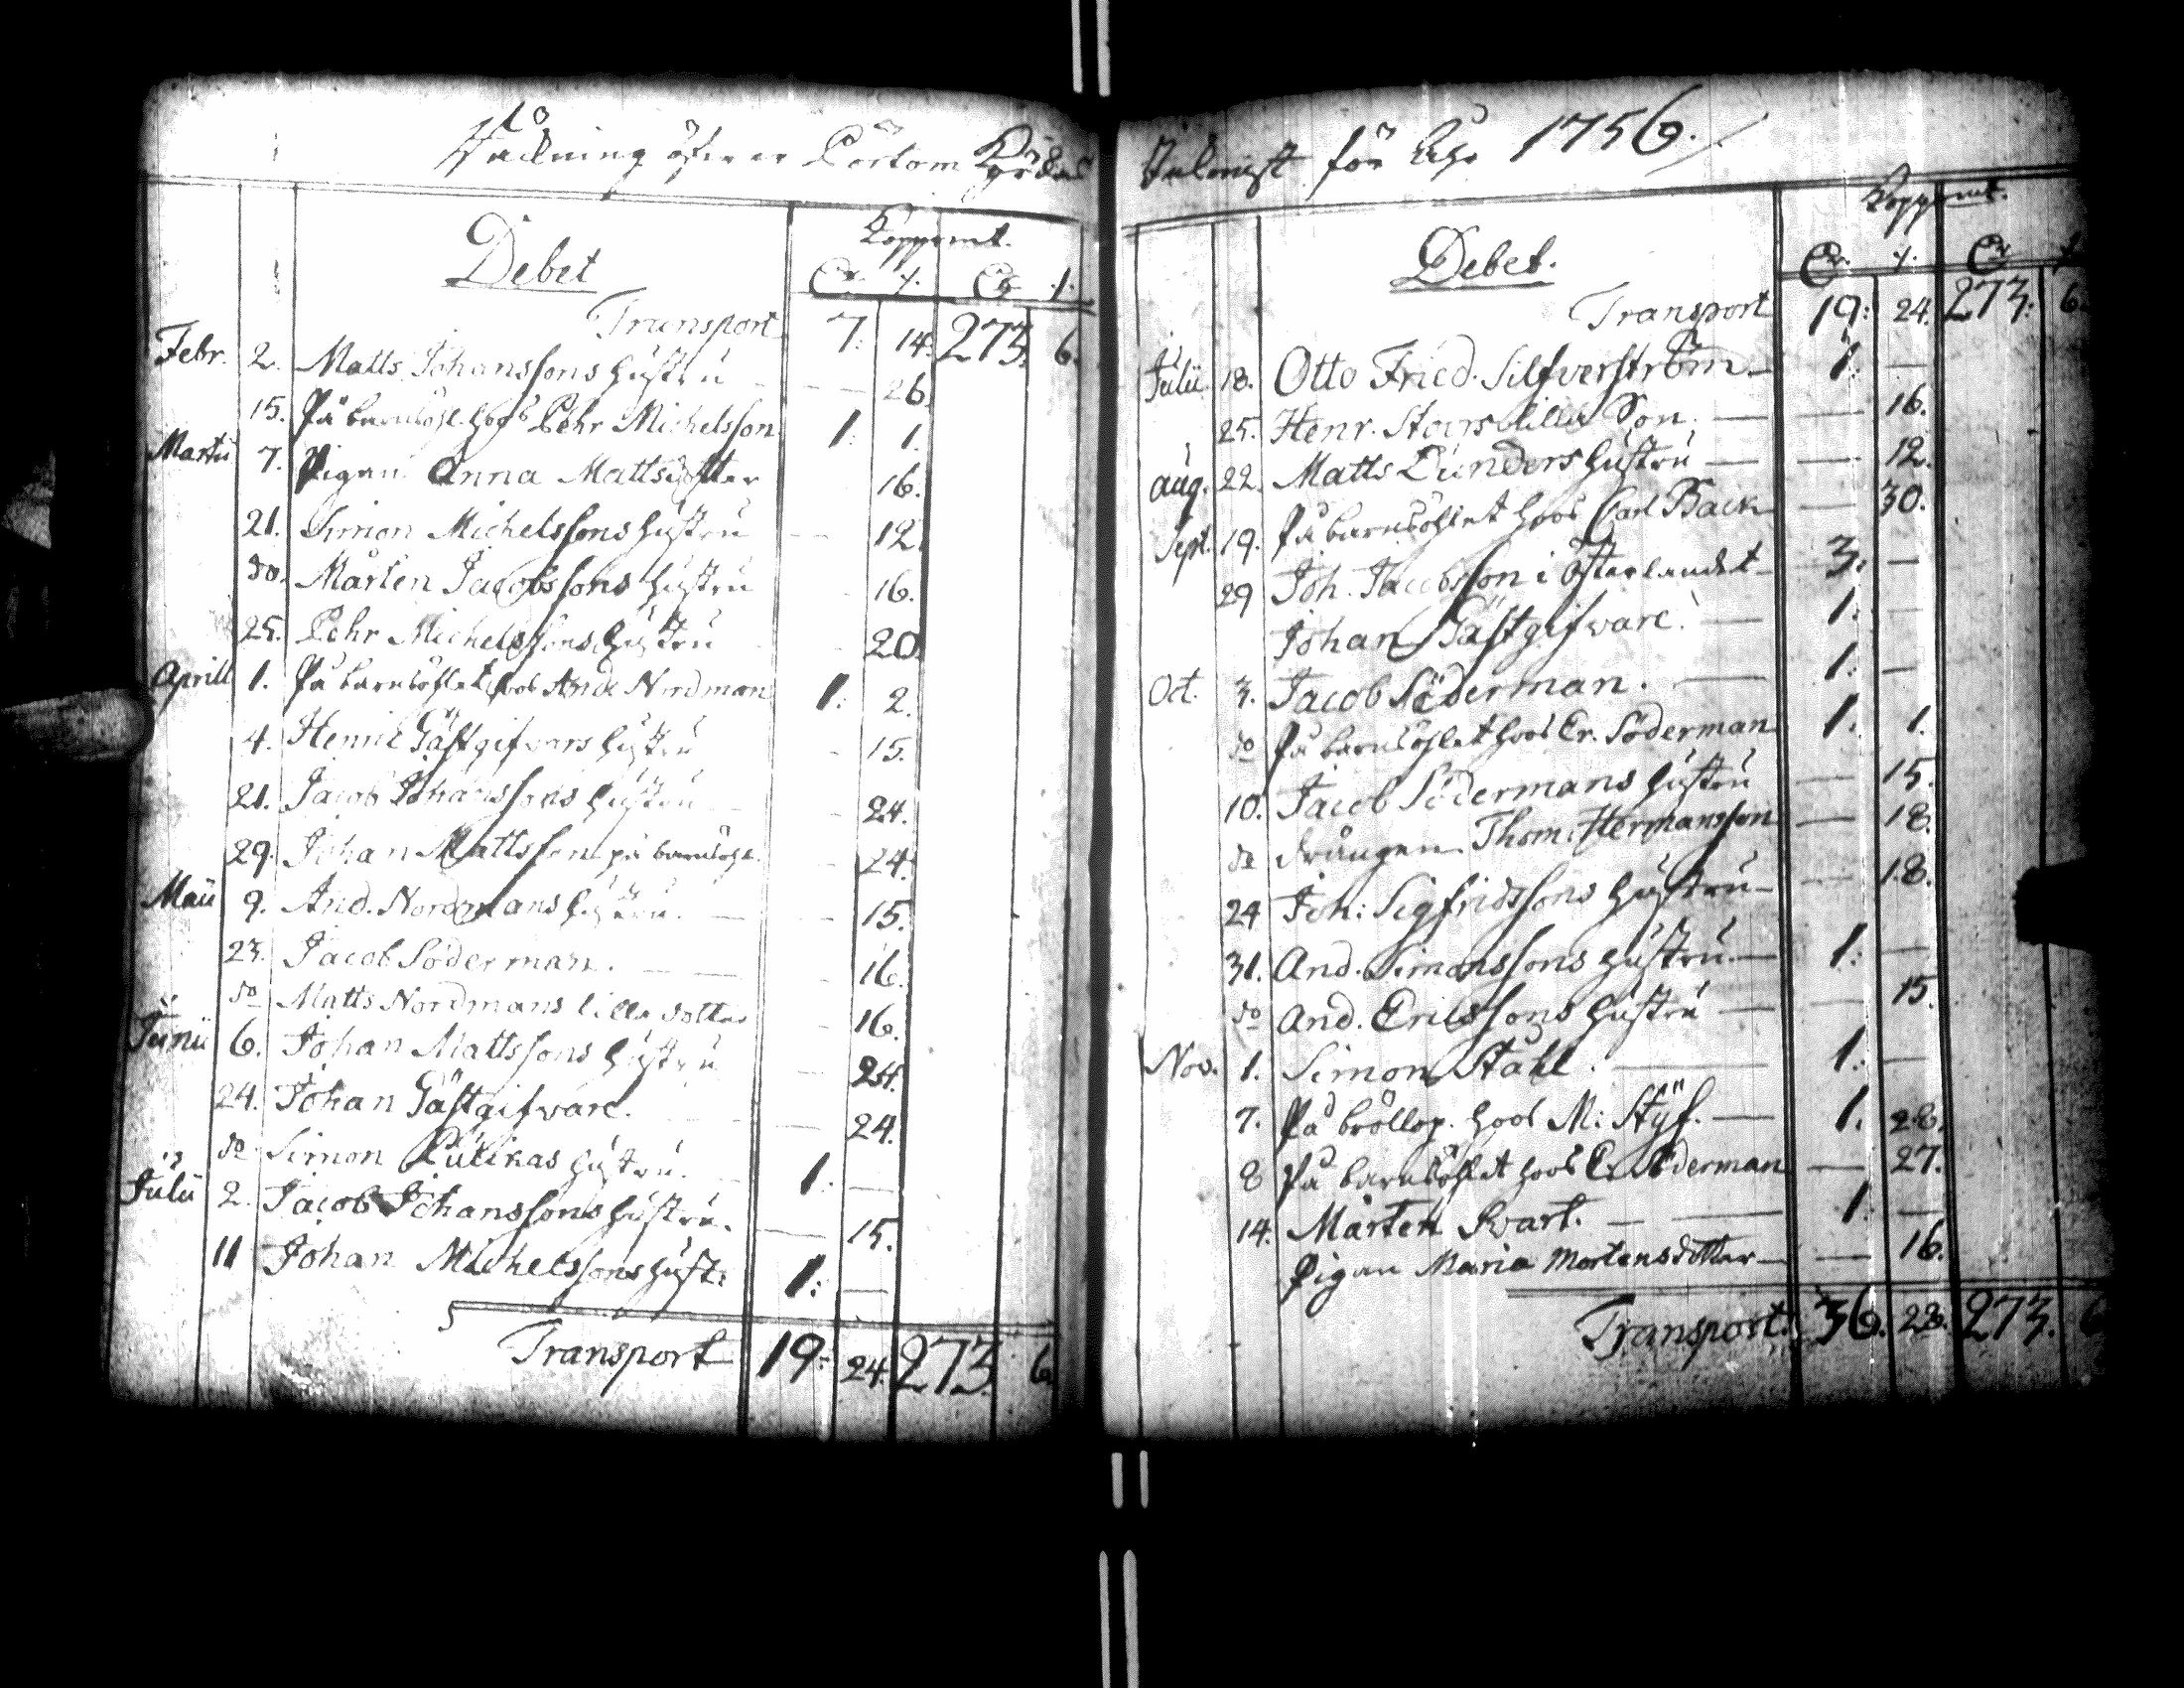 Räkning öfwer Pörtom Kyrkas
Debet
Koppmt.
Transport 7: 14. 273. 6.
Febr. 2. Matts Johanssons hustru — 26.
15. På barnsöhl. hos Pehr Michelsson 1: 1.
Martii 7. Pigan Anna Mattsdotter 16.
21. Simon Michelssons hustru — 12.
do. Mårten Jacobssons hustru 16.
25. Pehr Michelssons hustru 20.
Aprill 1. På barnsöhlet hos And. Nordman 1: 2.
4. Henric Gästgifwars hustru 15.
21. Jacob Johanssons hustru 24.
29. Johan Mattsson på barnsöhl. 24.
Maii 9. And. Nordmans hustru. — 15.
23. Jacob Söderman. — 16.
do Matts Nordmans lilla dotter 16.
Junii 6. Johan Mattssons hustru — 24.
24. Johan Gästgifware. — 24.
do Simon hustru. 1: —
Julii 2. Jacob Johanssons hustru. — 15.
11 Johan Michelssons hust: 1: —
Transport 19: 24. 273. 6.
Inkomst för Åhr 1756.
Koppmt.
Debet.
Transport 19: 24. 273: 6.
Julii 18. Otto Fried. Silfverström. 1: —
25. Henr. Stoors lilla Son. — 16.
Aug. 22. Matts Lunders hustru — 12.
Sept. 19. På barnsöhlet hos Carl Back — 30.
29 Joh. Jacobsson i Österlandet 3. —
Johan Gästgifware. — 1: —
Oct. 3. Jacob Söderman. — 1: —
do På barnsöhlet hos Er. Söderman 1. 1.
10. Jacob Södermans hustru — 15.
do drängen Thom. Hermansson — 18.
24 Joh: Sigfridssons hustru — 18.
31. And. Simonssons hustru. — 1: —
do And. Erikssons hustru — 15.
Nov. 1. Simon Ståhl. — 1: —
7. På bröllop. hos M: Styf. — 1. 28.
8 På barnsöhlet hos Er. Söderman — 27.
14. Mårten Svart. — 1. —
Pigan Maria Mortensdotter — 16.
Transport. 36. 28. 273. 6